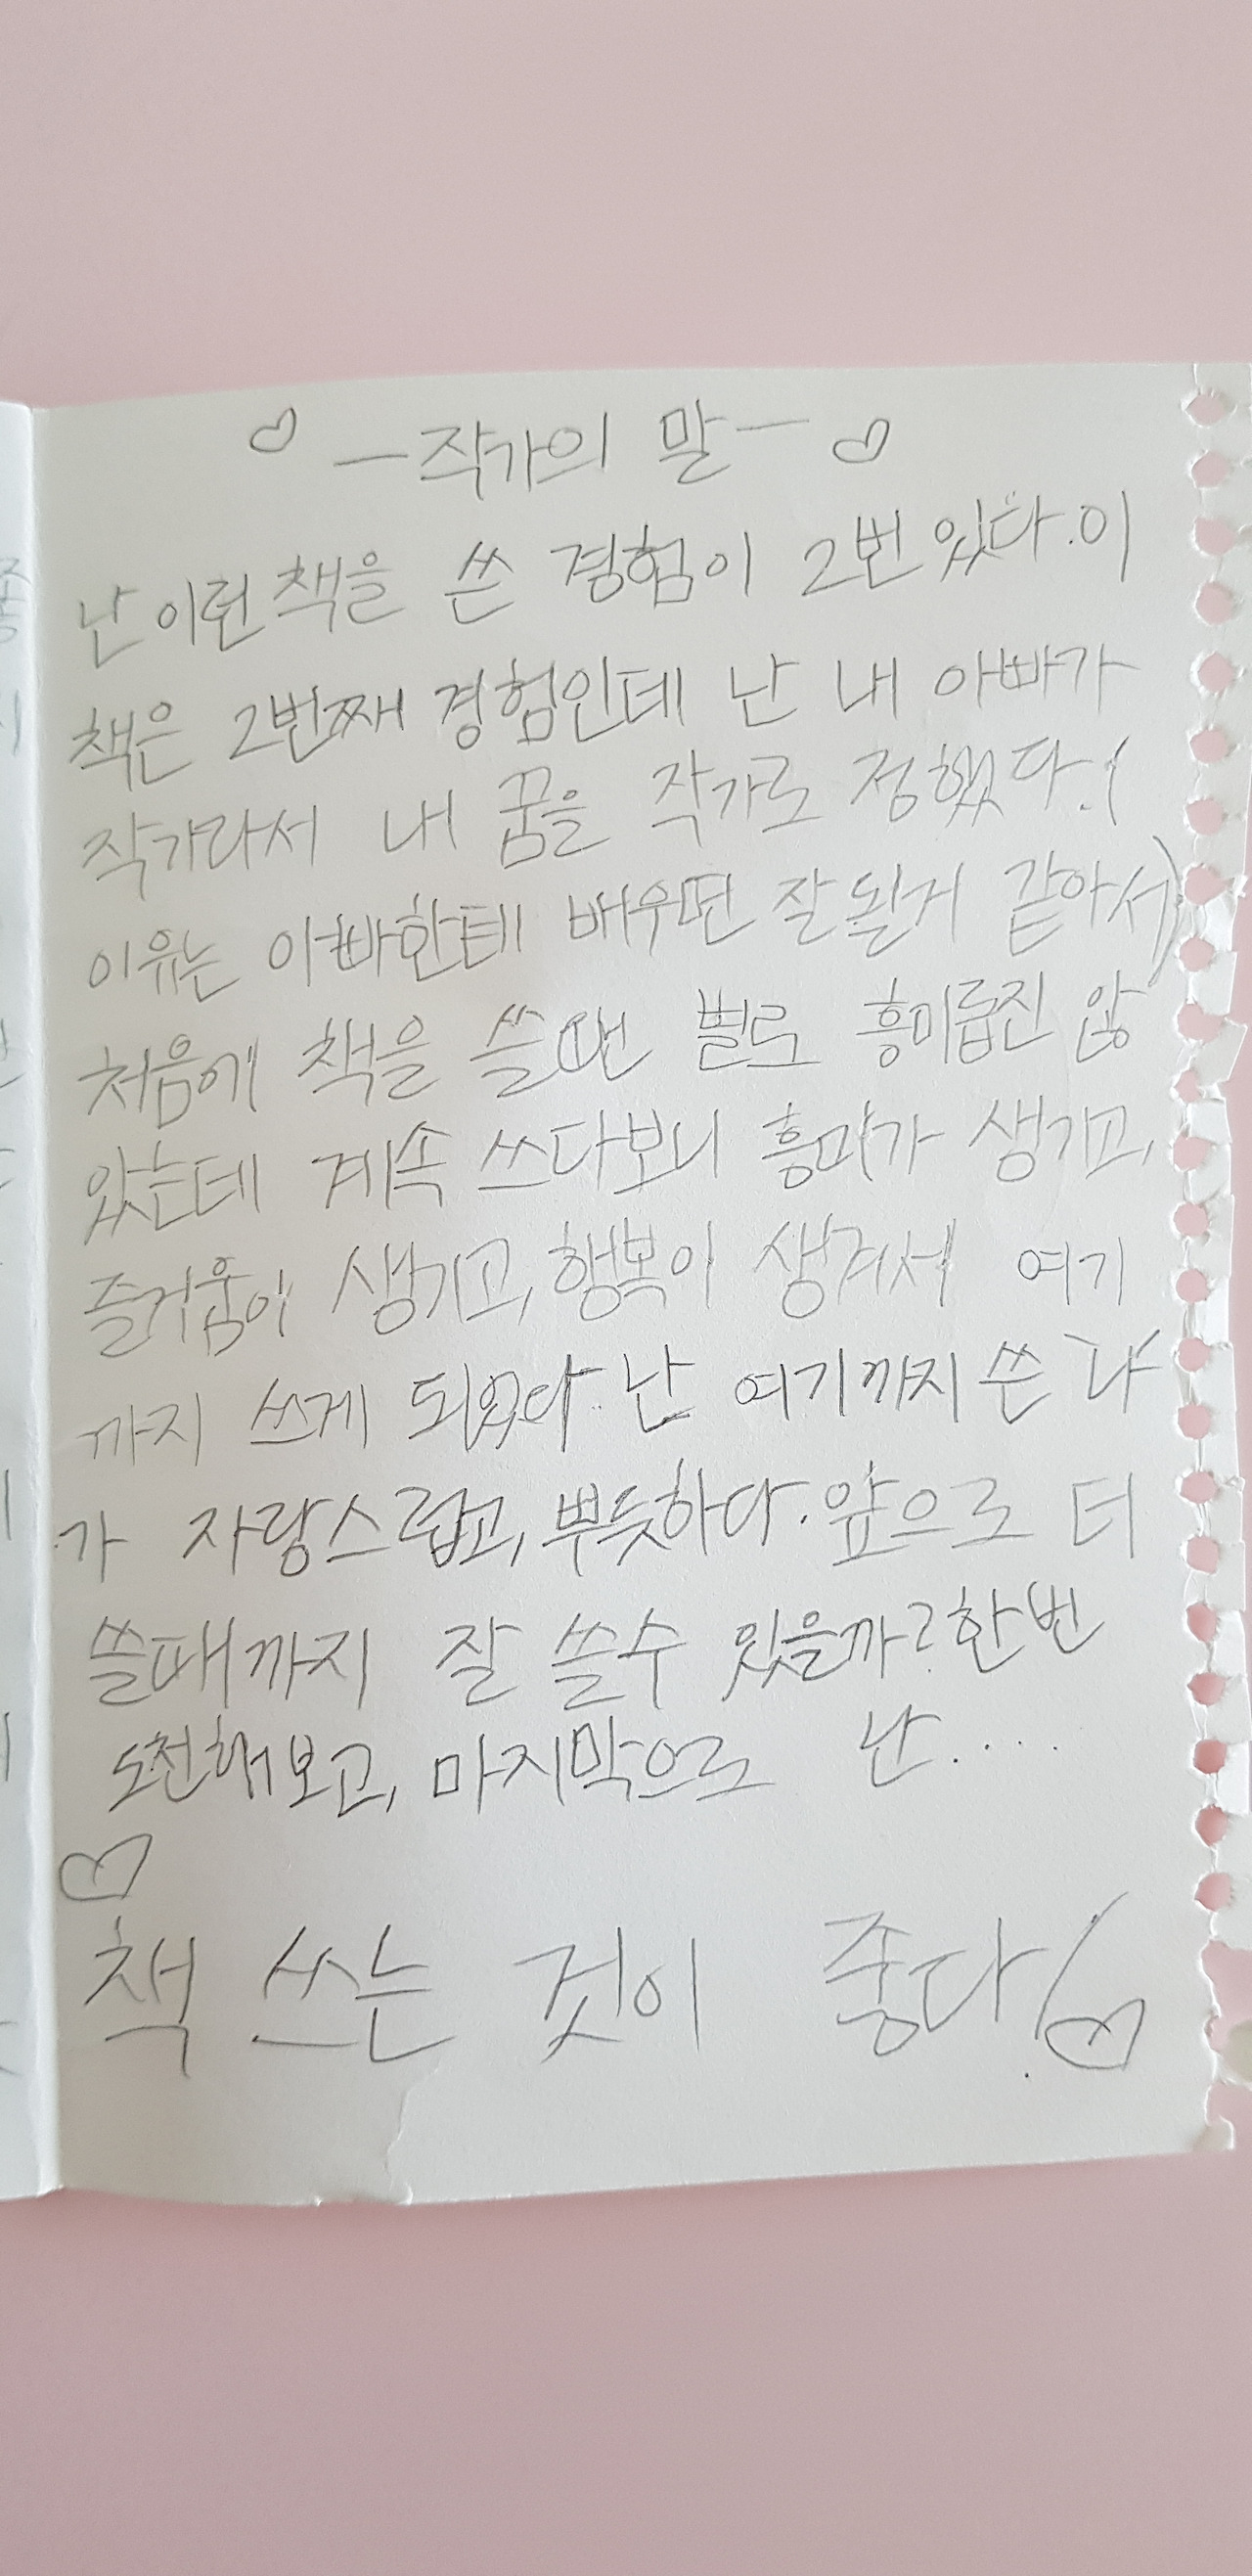 ♡ —작가의 말— ♡
난 이런 책을 쓴 경험이 2번 있다. 이
책은 2번째 경험인데 난 내 아빠가
작가라서 내 꿈을 작가로 정했다.(
이유는 아빠한테 배우면 잘될거 같아서)
처음에 책을 쓸땐 별로 흥미롭진 않
았는데 계속 쓰다보니 흥미가 생기고,
즐거움이 생기고, 행복이 생겨서 여기
까지 쓰게 되었다. 난 여기까지 쓴 나
가 자랑스럽고, 뿌듯하다. 앞으로 더
쓸때까지 잘 쓸수 있을까? 한번
도전해보고, 마지막으로 난....
♡
책 쓰는 것이 좋다! ♡